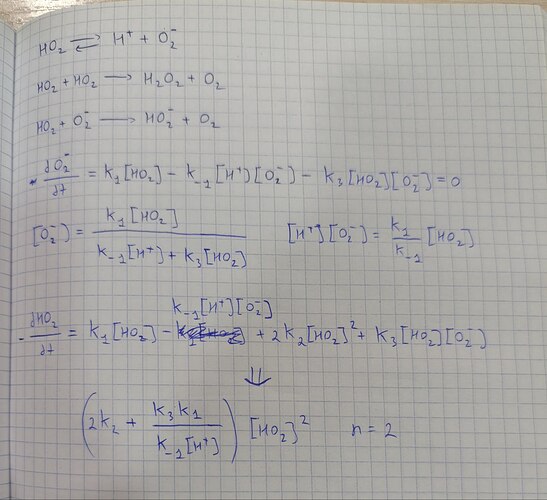 HO₂ ⇌ H⁺ + O₂⁻
HO₂ + HO₂ → H₂O₂ + O₂
HO₂ + O₂⁻ → HO₂⁻ + O₂
- dO₂⁻/dt = k₁[HO₂] - k₋₁[H⁺][O₂⁻] - k₃[HO₂][O₂⁻] = 0
[O₂⁻] = k₁[HO₂] / (k₋₁[H⁺] + k₃[HO₂]) [H⁺][O₂⁻] = k₁/k₋₁ [HO₂]
k₋₁[H⁺][O₂⁻]
- dHO₂/dt = k₁[HO₂] - + 2k₂[HO₂]² + k₃[HO₂][O₂⁻]
⇓
(2k₂ + k₃k₁ / k₋₁[H⁺]) [HO₂]² n = 2